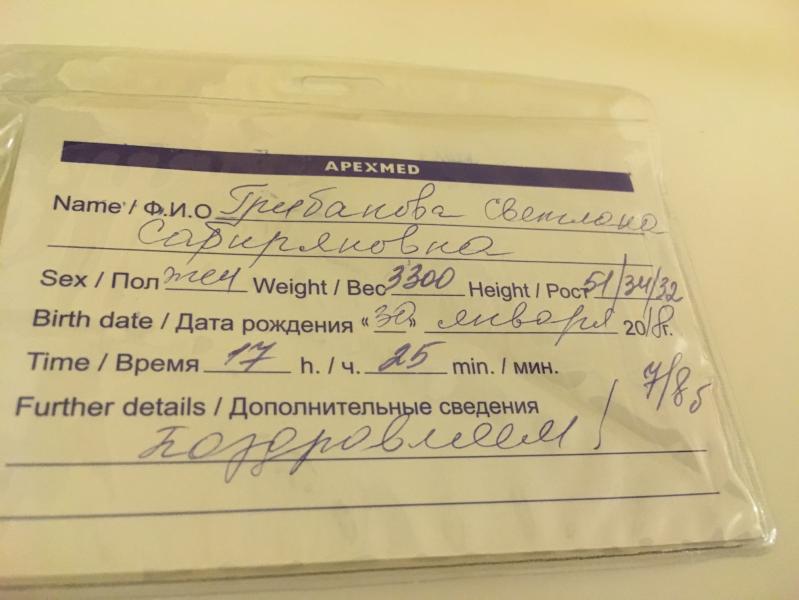 APEXMED
Name / Ф.И.О Грибанова Светлана
Сабиряновна
Sex / Пол жен Weight / Вес 3300 Height / Рост 51/34/32
Birth date / Дата рождения «30» января 2018г.
Time / Время 17 h. / ч. 25 min. / мин.
7/8б
Further details / Дополнительные сведения
Поздравляем!